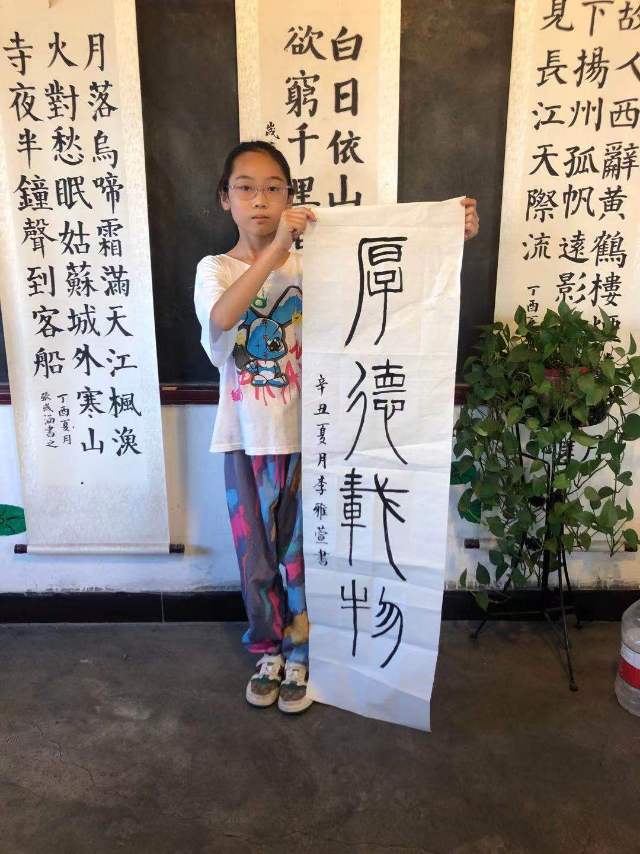 月落烏啼霜滿天江楓漁
火對愁眠姑蘇城外寒山
寺夜半鐘聲到客船
丁酉夏月
張涵書之
白日依山
欲窮千
歲
故人西辭黃鶴樓
下揚州孤帆遠影
見長江天際流
丁酉
厚德載物
辛丑夏月李雅萱書